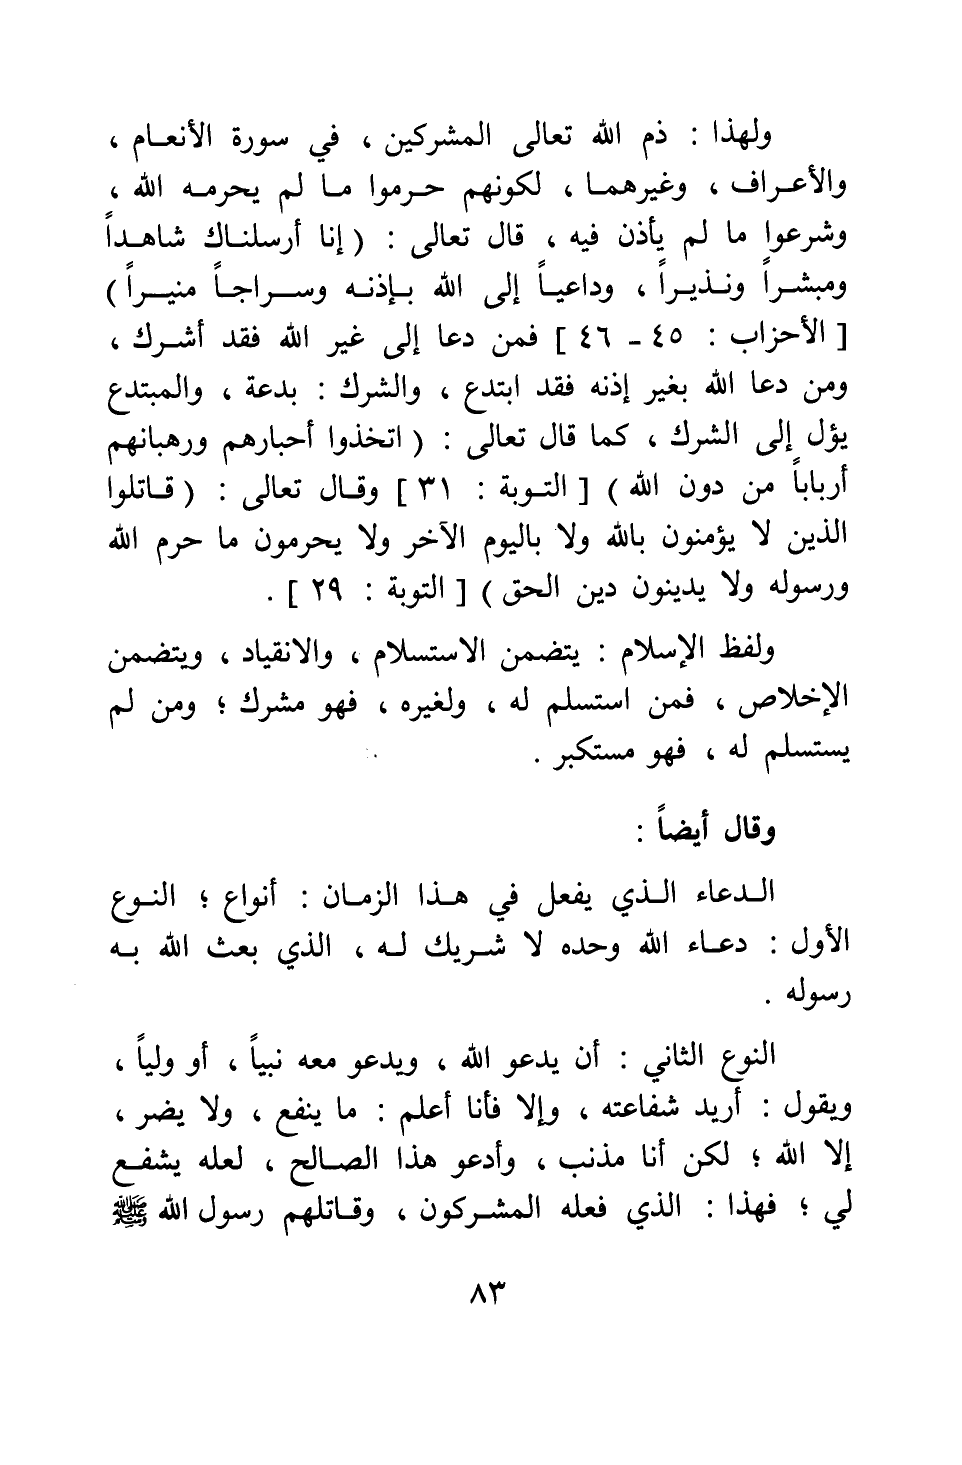 ولهذا : ذم الله تعالى المشركين ، في سورة الأنعـام ،
والأعـراف ، وغيرهمـا ، لكونهم حـرموا مـا لم يحرمـه الله ،
وشرعوا ما لم يأذن فيه ، قال تعالى : ( إنا أرسلنـاك شاهـداً
ومبشـراً ونـذيـراً ، وداعيـاً إلى الله بـإذنـه وسـراجـاً منيـراً )
[ الأحزاب : ٤٥ ـ ٤٦ ] فمن دعا إلى غير الله فقد أشـرك ،
ومن دعا الله بغير إذنه فقد ابتدع ، والشرك : بدعة ، والمبتدع
يؤل إلى الشرك ، كما قال تعالى : ( اتخذوا أحبارهم ورهبانهم
أرباباً من دون الله ) [ التـوبة : ٣١ ] وقـال تعالى : ( قـاتلوا
الذين لا يؤمنون بالله ولا باليوم الآخر ولا يحرمون ما حرم الله
ورسوله ولا يدينون دين الحق ) [ التوبة : ٢٩ ] .
ولفظ الإسلام : يتضمن الاستسلام ، والانقياد ، ويتضمن
الإخلاص ، فمن استسلم له ، ولغيره ، فهو مشرك ؛ ومن لم
يستسلم له ، فهو مستكبر .
وقال أيضاً :
الـدعاء الـذي يفعل في هـذا الزمـان : أنواع ؛ النـوع
الأول : دعـاء الله وحده لا شـريك لـه ، الذي بعث الله بـه
رسوله .
النوع الثاني : أن يدعو الله ، ويدعو معه نبياً ، أو ولياً ،
ويقول : أريد شفاعته ، وإلا فأنا أعلم : ما ينفع ، ولا يضر ،
إلا الله ؛ لكن أنا مذنب ، وأدعو هذا الصـالح ، لعله يشفـع
لي ؛ فهذا : الذي فعله المشـركون ، وقـاتلهم رسول الله ﷺ
٨٣